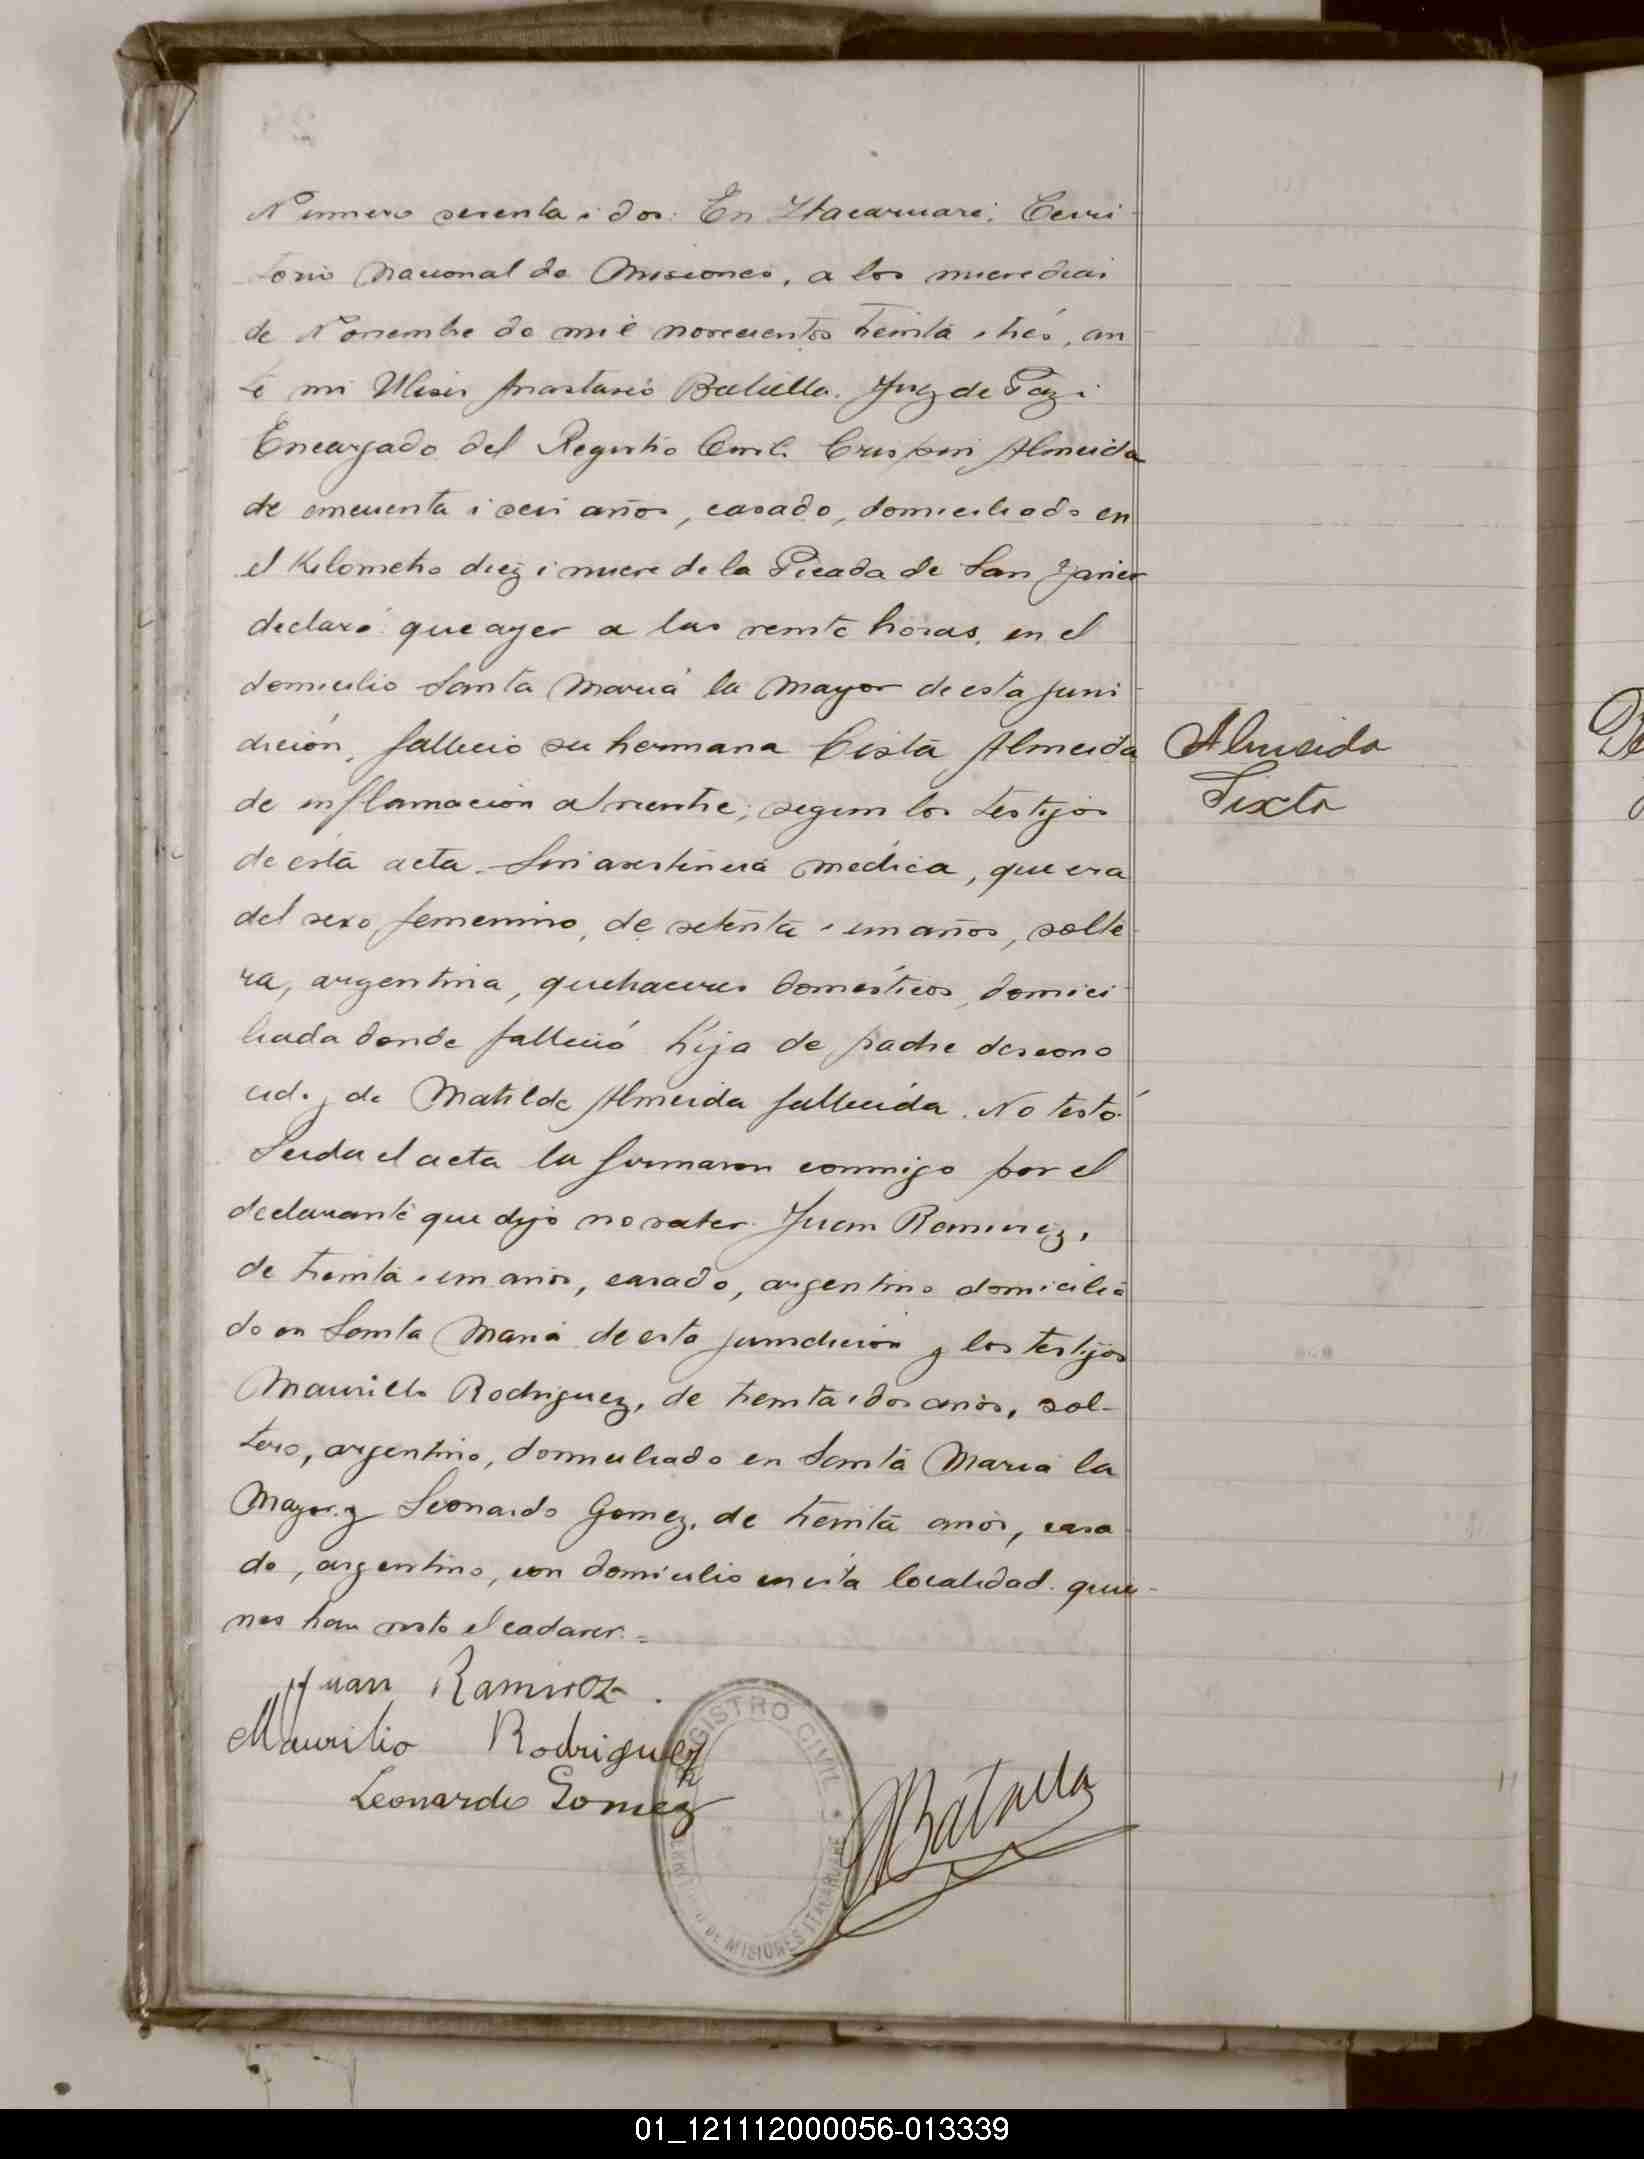 Numero sesenta i dos: En Itacaruaré, Terri-
torio Nacional de Misiones, a los nueve dias
de Noviembre de mil novecientos treinta i trés, an
te mi Ulises Anastasio Batalla. Juez de Paz i
Encargado del Registro Civil. Crispin Almeida
de cincuenta i seis años, casado, domiciliado en
el Kilometro diez i nueve de la Picada de San Javier
declaró: que ayer a las veinte horas, en el
domicilio Santa Maria la Mayor de esta juris
dición, falleció su hermana Cista Almeida
de inflamacion al vientre; segun los testigos
de esta acta. Sin asistencia medica, que era
del sexo femenino, de setenta i un años, solte
ra, argentina, quehaceres domésticos, domici
liada donde falleció hija de padre descono
cido y de Matilde Almeida fallecida. No testó.
Leida el acta la firmaron conmigo por el
declarante que dijo no saber. Juan Ramirez,
de treinta i un años, casado, argentino domicilia
do en Santa Maria de esta jurisdicion y los testigos
Maurillo Rodriguez, de treinta i dos años, sol-
tero, argentino, domiciliado en Santa Maria la
Mayor. y Leonardo Gomez, de treinta años, casa
do, argentino, con domicilio en esta localidad. quie-
nes han visto el cadaver.=
Almeida
Sixta
Juan Ramirez.
Maurilio Rodriguez
Leonardo Gomez
Batalla
REGISTRO CIVIL
DE MISIONES ITACARUARE
01_121112000056-013339